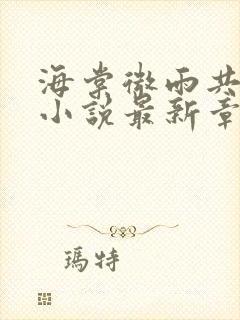 海棠微雨共
小说最新章
瑪特